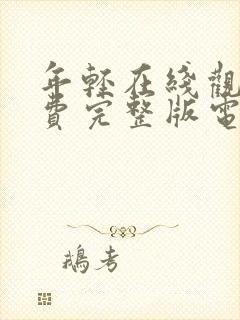 年軽在綫觀
費完整版電
鵝考